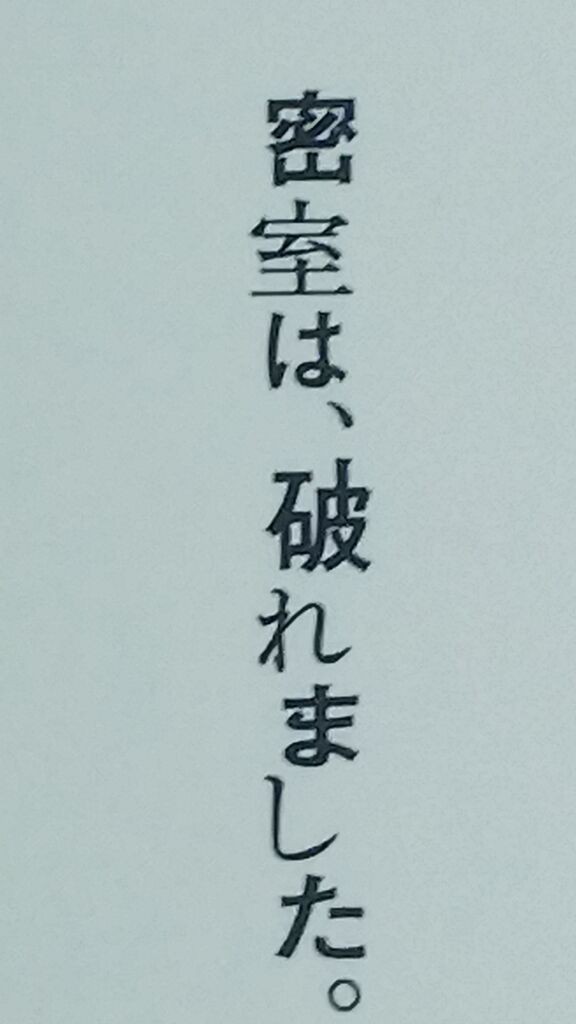 密室は、破れました。